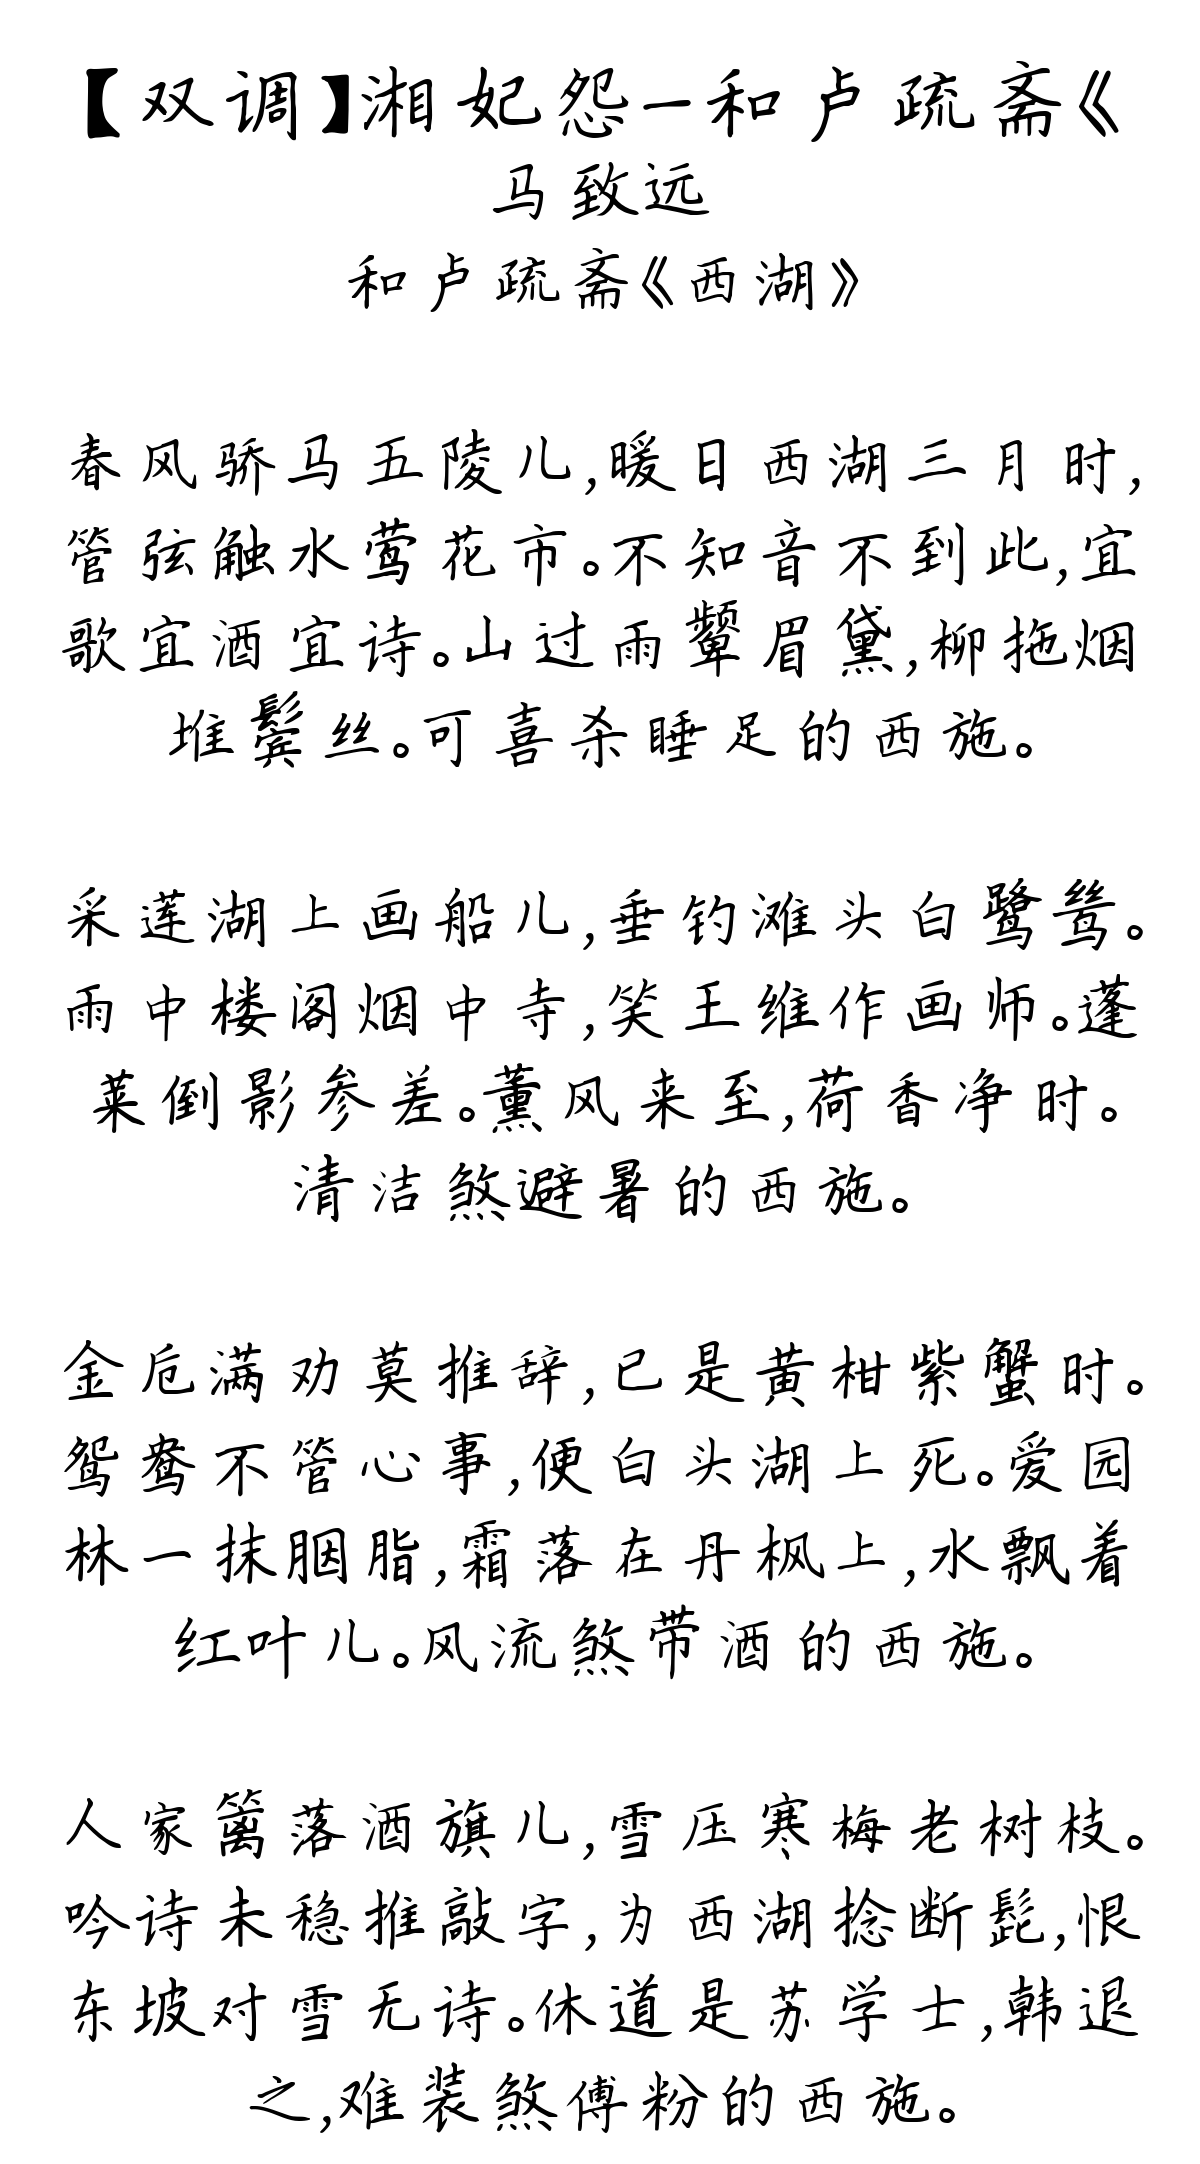 【双调】湘妃怨-和卢疏斋《
马致远
和卢疏斋《西湖》
春风骄马五陵儿,暖日西湖三月时,
管弦触水莺花市。不知音不到此,宜
歌宜酒宜诗。山过雨颦眉黛,柳拖烟
堆鬓丝。可喜杀睡足的西施。
采莲湖上画船儿,垂钓滩头白鹭鸶。
雨中楼阁烟中寺,笑王维作画师。蓬
莱倒影参差。薰风来至,荷香净时。
清洁煞避暑的西施。
金卮满劝莫推辞,已是黄柑紫蟹时。
鸳鸯不管心事,便白头湖上死。爱园
林一抹胭脂,霜落在丹枫上,水飘着
红叶儿。风流煞带酒的西施。
人家篱落酒旗儿,雪压寒梅老树枝。
吟诗未稳推敲字,为西湖捻断髭,恨
东坡对雪无诗。休道是苏学士,韩退
之,难装煞傅粉的西施。